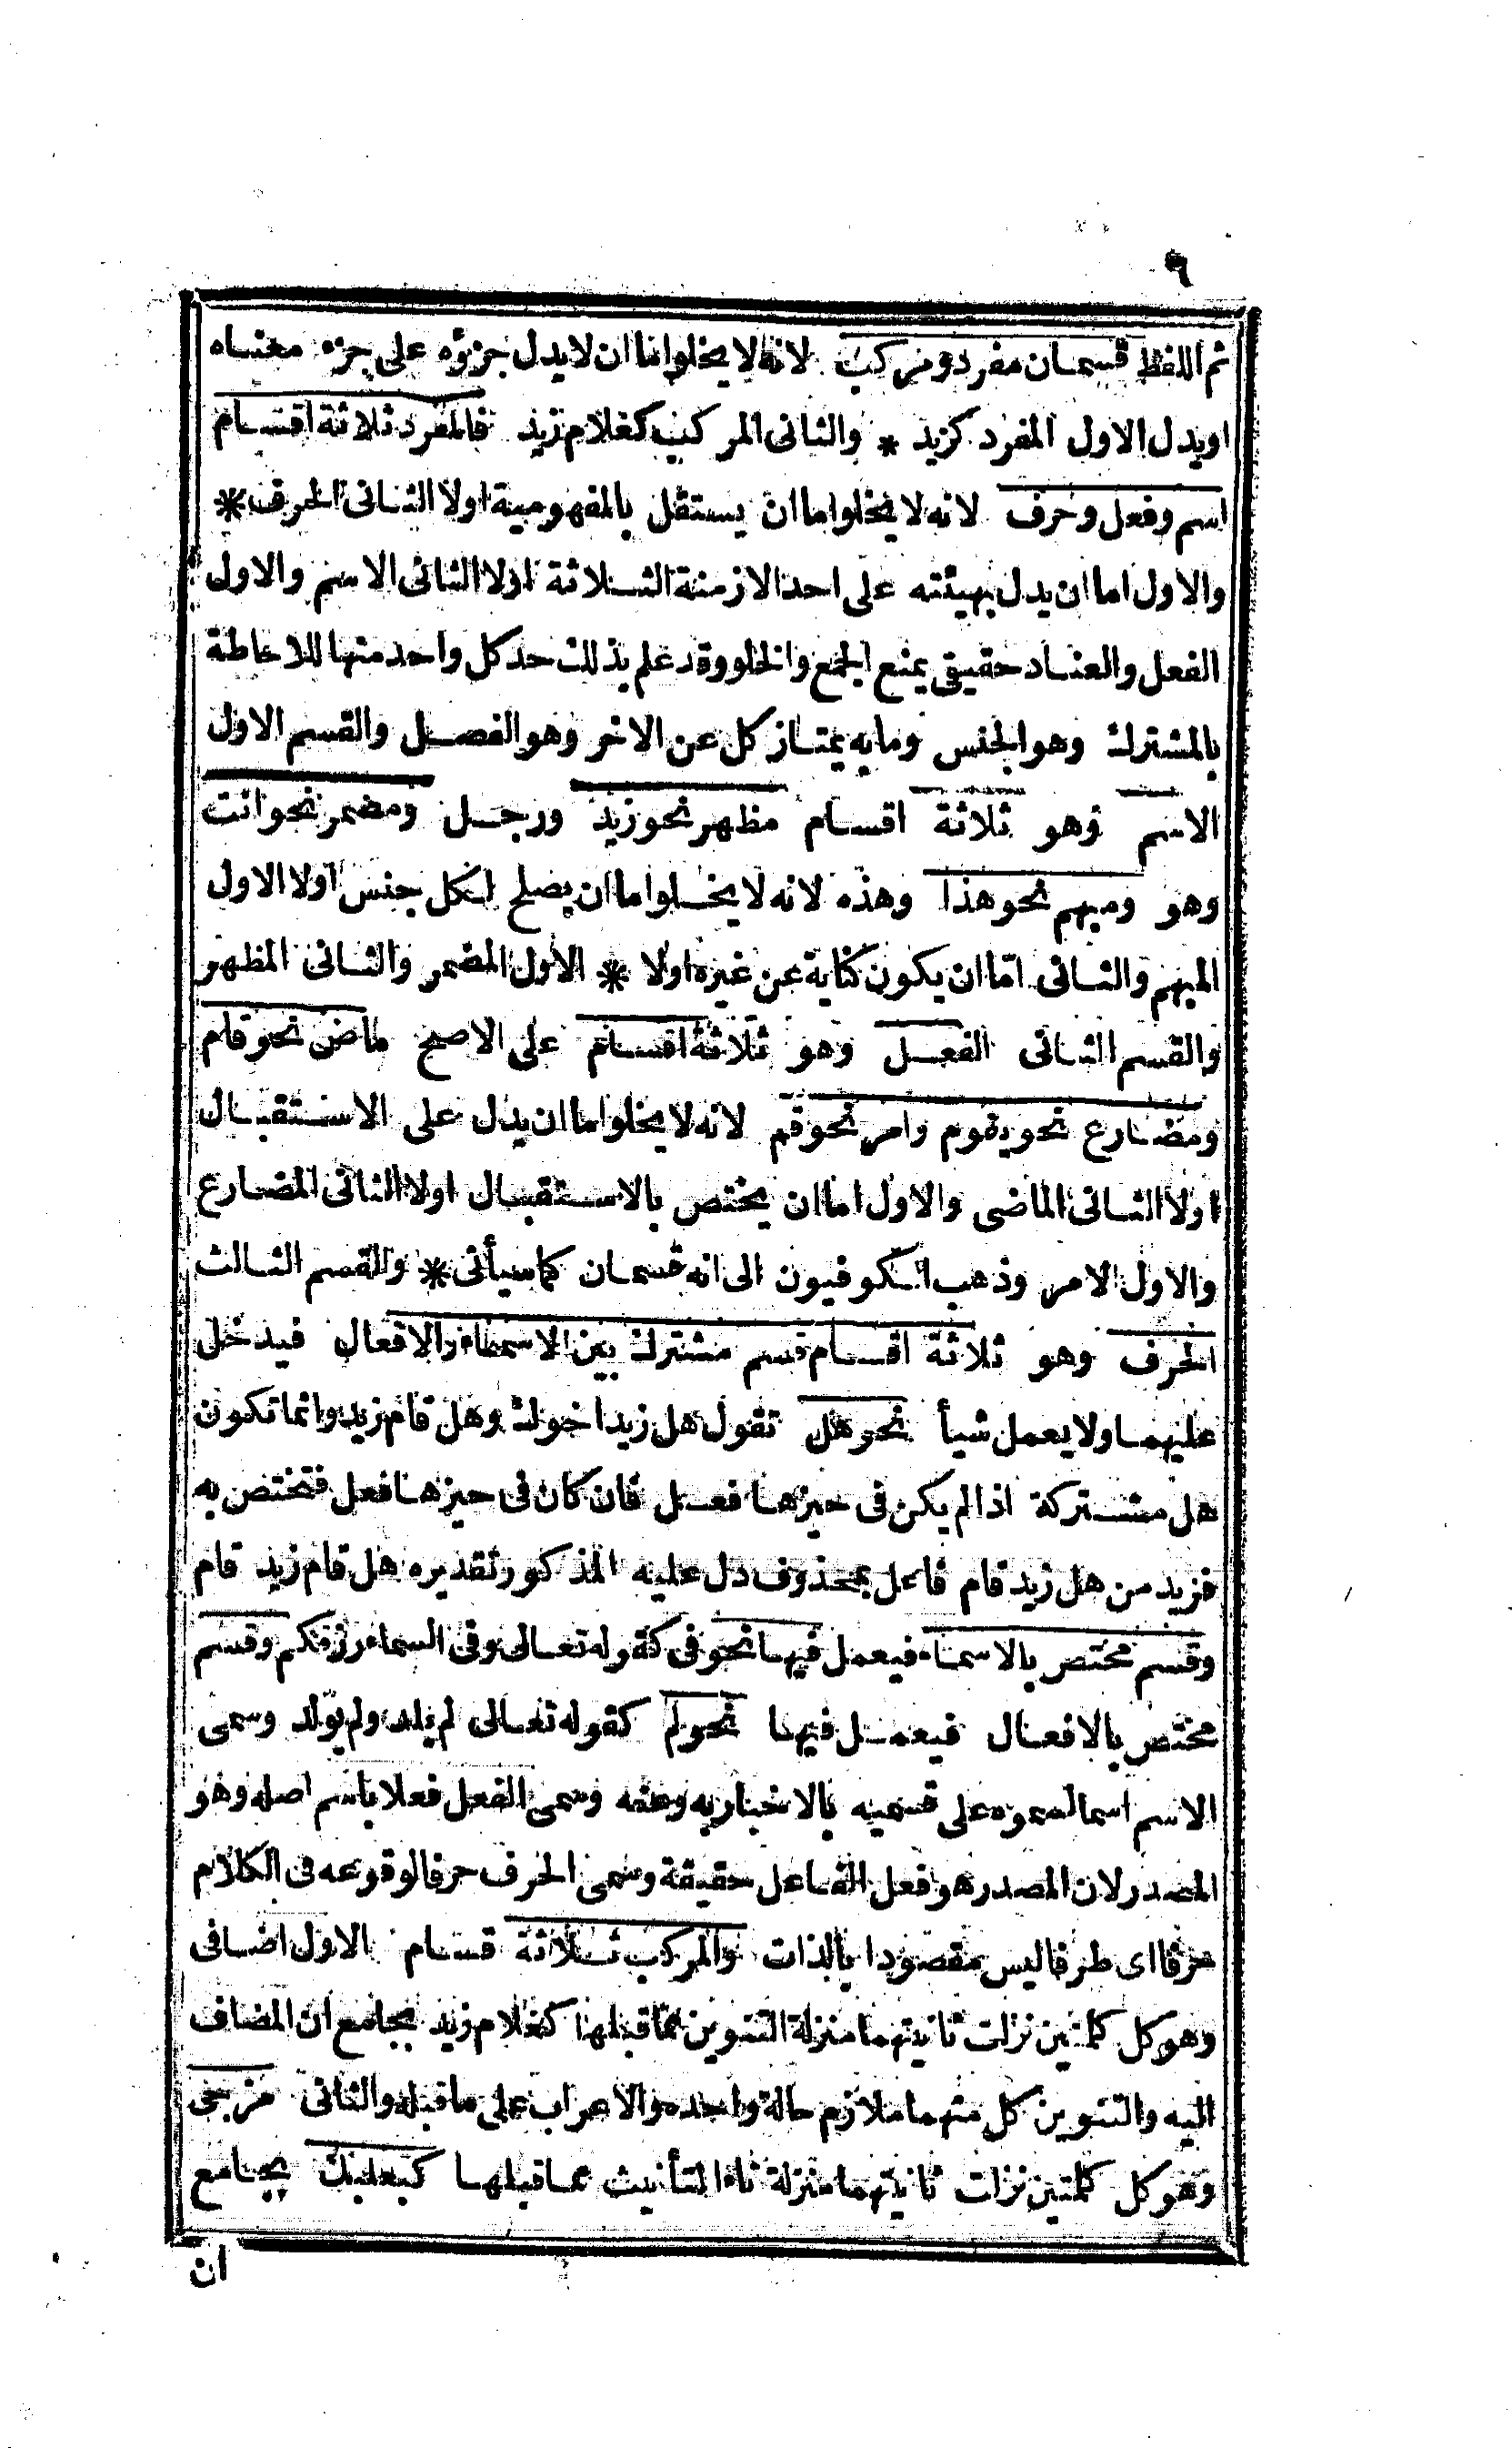 ٦
ثم اللفظ قسمان مفرد ومركب لانه لا يخلو اما ان لا يدل جزؤه على جزء معناه
او يدل الاول المفرد كزيد * والثانى المركب كغلام زيد فالمفرد ثلاثة اقسام
اسم وفعل وحرف لانه لا يخلوا اما ان يستقل بالمفهومية اولا الثانى الحرف *
والاول اما ان يدل بهيئته على احد الازمنة الثلاثة اولا الثانى الاسم والاول
الفعل والعناد حقيقى يمنع الجمع والخلو وقد علم بذلك حد كل واحد منها للاحاطة
بالمشترك وهو الجنس وما به يمتاز كل عن الاخر وهو الفصل والقسم الاول
الاسم وهو ثلاثة اقسام مظهر نحو زيد ورجل ومضمر نحو انت
وهو ومبهم نحو هذا وهذه لانه لا يخلوا اما ان يصلح لكل جنس اولا الاول
المبهم والثانى اما ان يكون كناية عن غيره اولا * الاول المضمر والثانى المظهر
والقسم الثانى الفعل وهو ثلاثة اقسام على الاصح ماض نحو قام
ومضارع نحو يقوم وامر نحو قم لانه لا يخلوا اما ان يدل على الاستقبال
اولا الثانى الماضى والاول اما ان يختص بالاستقبال اولا الثانى المضارع
والاول الامر وذهب الكوفيون الى انه قسمان كما سيأتى * والقسم الثالث
الحرف وهو ثلاثة اقسام قسم مشترك بين الاسماء والافعال فيدخل
عليهما ولا يعمل شيأ نحو هل تقول هل زيد اخوك وهل قام زيد وانما تكون
هل مشتركة اذا لم يكن فى حيزها فعل فان كان فى حيزها فعل فتختص به
فزيد من هل زيد قام فاعل بمحذوف دل عليه المذكور تقديره هل قام زيد قام
وقسم مختص بالاسماء فيعمل فيها نحو فى كقوله تعالى وفى السماء رزقكم وقسم
مختص بالافعال فيعمل فيها نحو لم كقوله تعالى لم يلد ولم يولد وسمى
الاسم اسما لسموه على قسميه بالاخبار به وعنه وسمى الفعل فعلا باسم اصله وهو
المصدر لان المصدر هو فعل الفاعل حقيقة وسمى الحرف حرفا لوقوعه فى الكلام
حرفا اى طرفا ليس مقصودا بالذات والمركب ثلاثة قسام الاول اضافى
وهو كل كلمتين نزلت ثانيتهما منزلة التنوين مما قبلها كغلام زيد بجامع ان المضاف
اليه والتنوين كل منهما ملازم حالة واحده والاعراب على ما قبله والثانى مزجى
وهو كل كلمتين نزلت ثانيتهما منزلة تاء التأنيث مما قبلها كبعلبك بجامع
ان